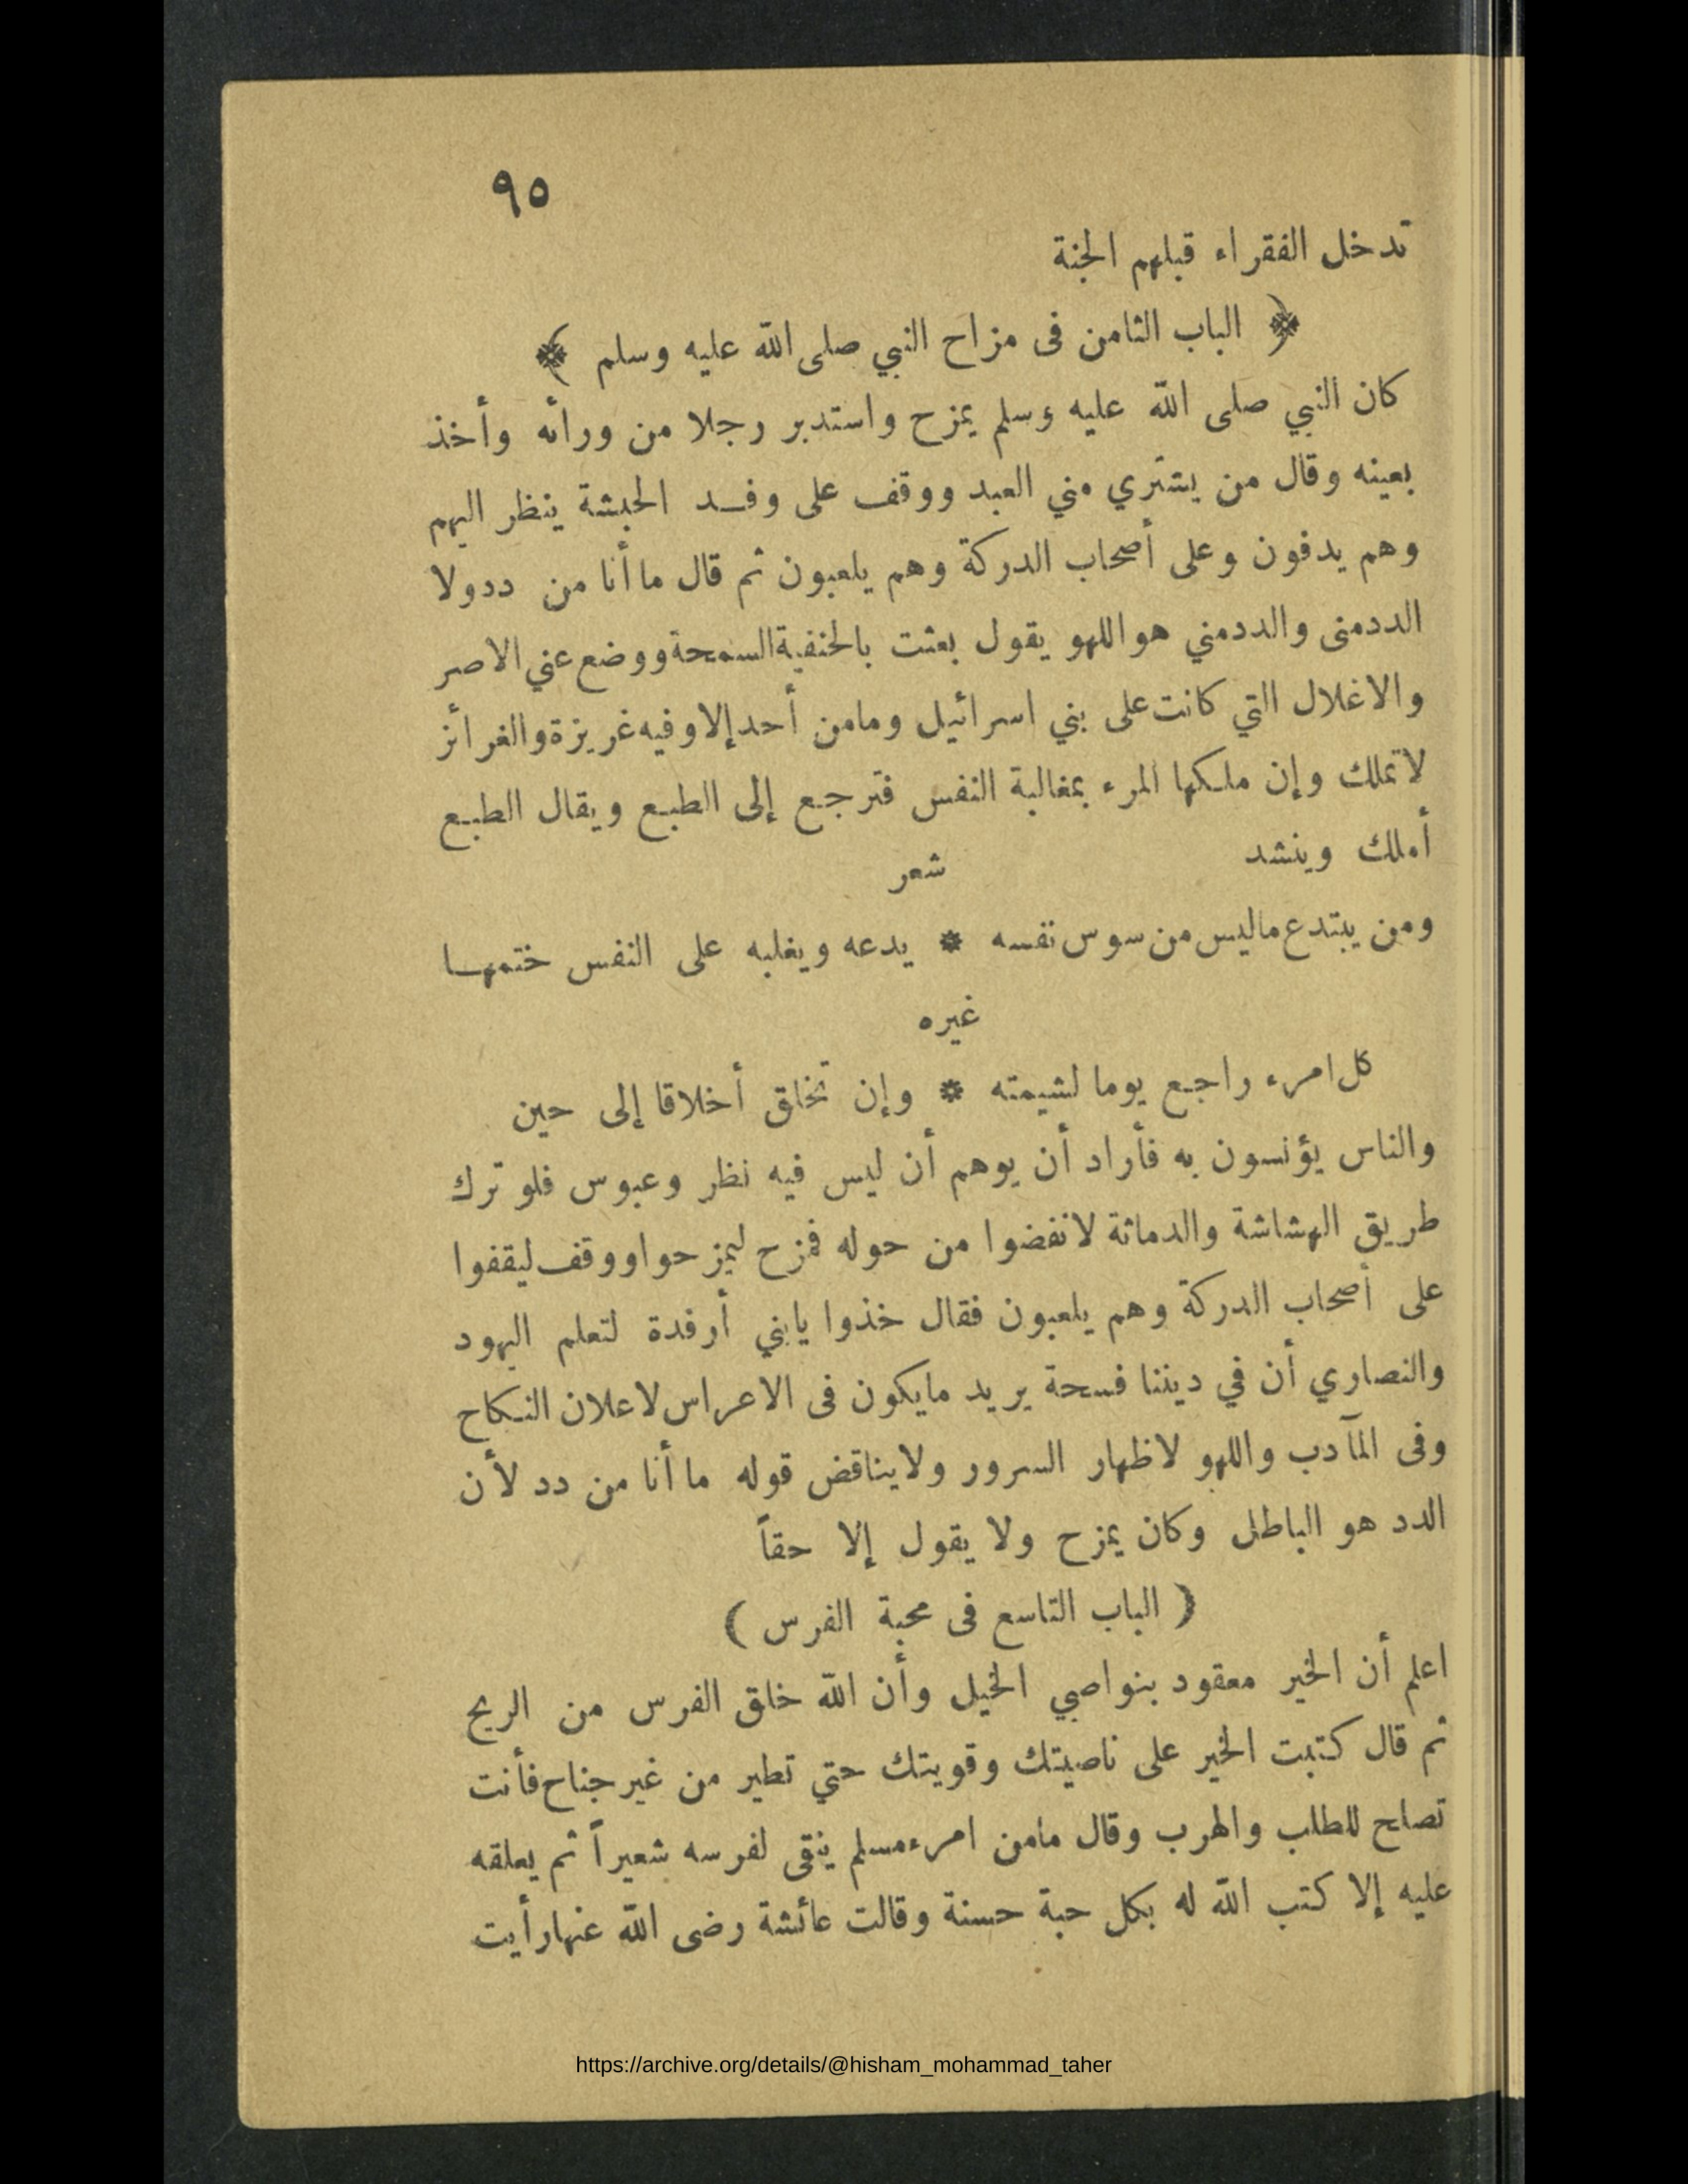 ٩٥
تدخل الفقراء قبلهم الجنة
﴿ الباب الثامن فى مزاح النبي صلى الله عليه وسلم ﴾
كان النبي صلى الله عليه وسلم يمزح واستدبر رجلا من ورائه وأخذ
بعينه وقال من يشتري مني العبد ووقف على وفد الحبشة ينظر اليهم
وهم يدفون وعلى أصحاب الدركة وهم يلعبون ثم قال ما أنا من ددولا
الددمنى والددمني هو اللهو يقول بعثت بالحنفية السمحة ووضع عني الاصر
والاغلال التي كانت على بني اسرائيل ومامن أحد إلا وفيه غريزة والغرائز
لا تملك وإن ملكها المرء بمغالبة النفس فترجع إلى الطبع ويقال الطبع
أملك وينشد شعر
ومن يبتدع ماليس من سوس نفسه * يدعه ويغلبه على النفس ختمها
غيره
كل امرء راجع يوما لشيمته * وإن تخلق أخلاقا إلى حين
والناس يؤنسون به فأراد أن يوهم أن ليس فيه نظر وعبوس فلو ترك
طريق الهشاشة والدماثة لانفضوا من حوله فمزح ليمزحوا ووقف ليقفوا
على أصحاب الدركة وهم يلعبون فقال خذوا يابني أرفدة لتعلم اليهود
والنصاري أن في ديننا فسحة يريد مايكون فى الاعراس لاعلان النكاح
وفى المآدب واللهو لاظهار السرور ولا يناقض قوله ما أنا من دد لأن
الدد هو الباطل وكان يمزح ولا يقول إلا حقاً
( الباب التاسع فى محبة الفرس )
اعلم أن الخير معقود بنواصي الخيل وأن الله خلق الفرس من الريح
ثم قال كتبت الخير على ناصيتك وقويتك حتي تطير من غير جناح فأنت
تصلح للطلب والهرب وقال مامن امرء مسلم ينقى لفرسه شعيراً ثم يعلقه
عليه إلا كتب الله له بكل حبة حسنة وقالت عائشة رضى الله عنها رأيت
https://archive.org/details/@hisham_mohammad_taher